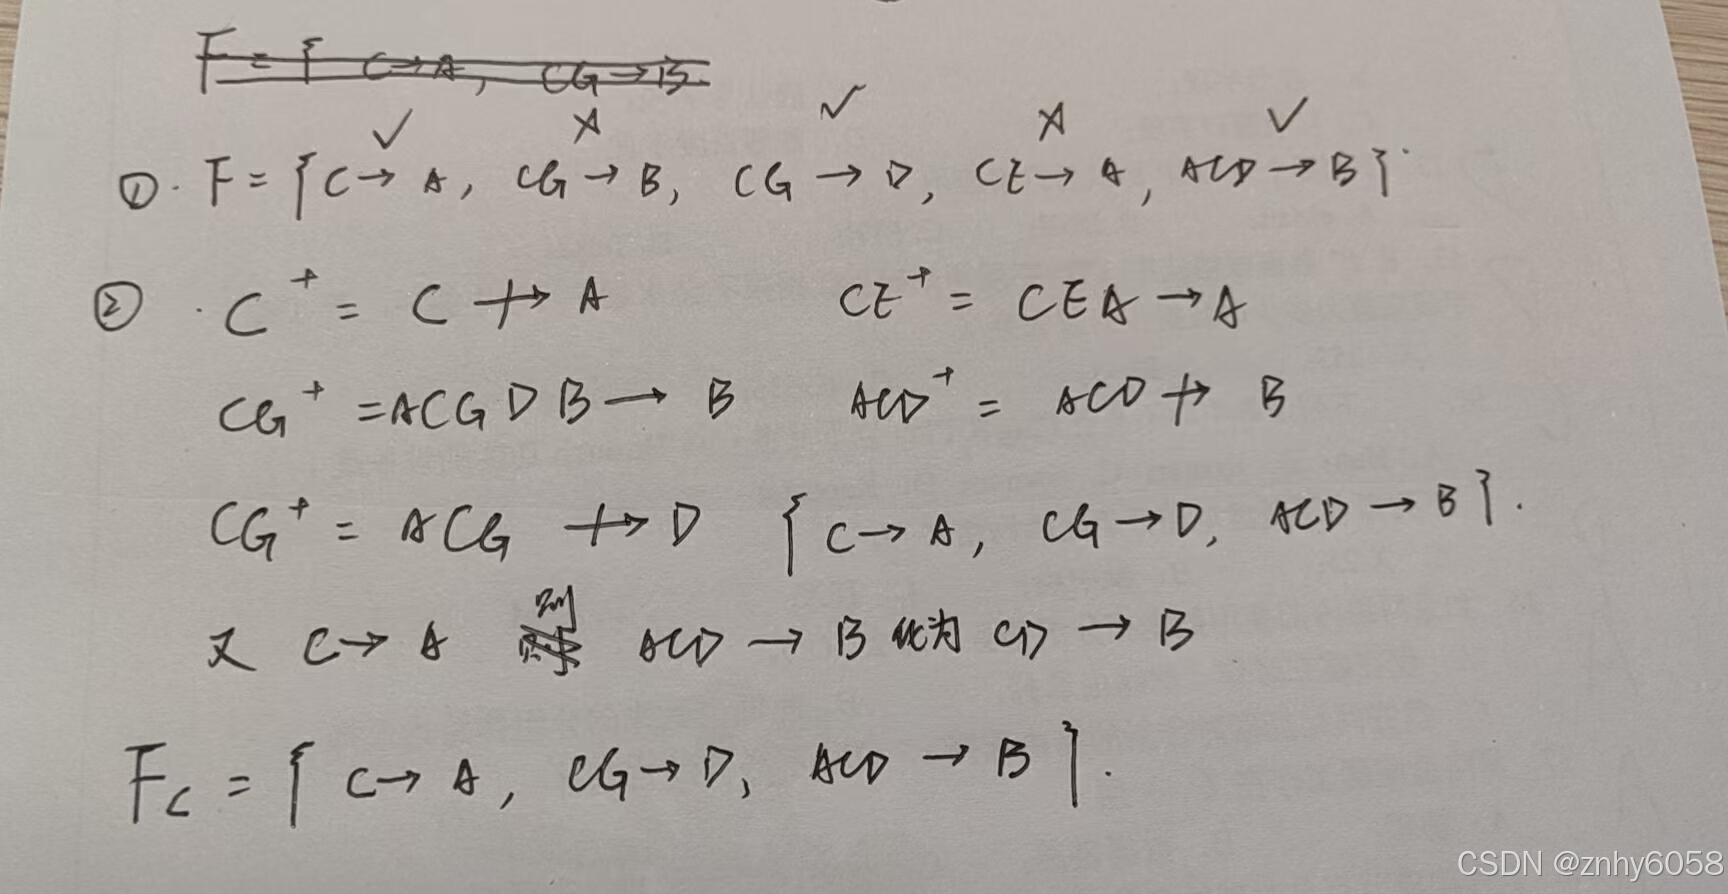 F = { C → A, CG → B
✓ × ✓ × ✓
①. F = { C → A, CG → B, CG → D, CE → A, ACD → B }.
②. C⁺ = C ↛ A CE⁺ = CEA → A
CG⁺ = ACGDB → B ACD⁺ = ACD ↛ B
CG⁺ = ACG ↛ D { C → A, CG → D, ACD → B }.
又 C → A 则 ACD → B 化为 CD → B
Fc = { C → A, CG → D, ACD → B }.
CSDN @znhy6058